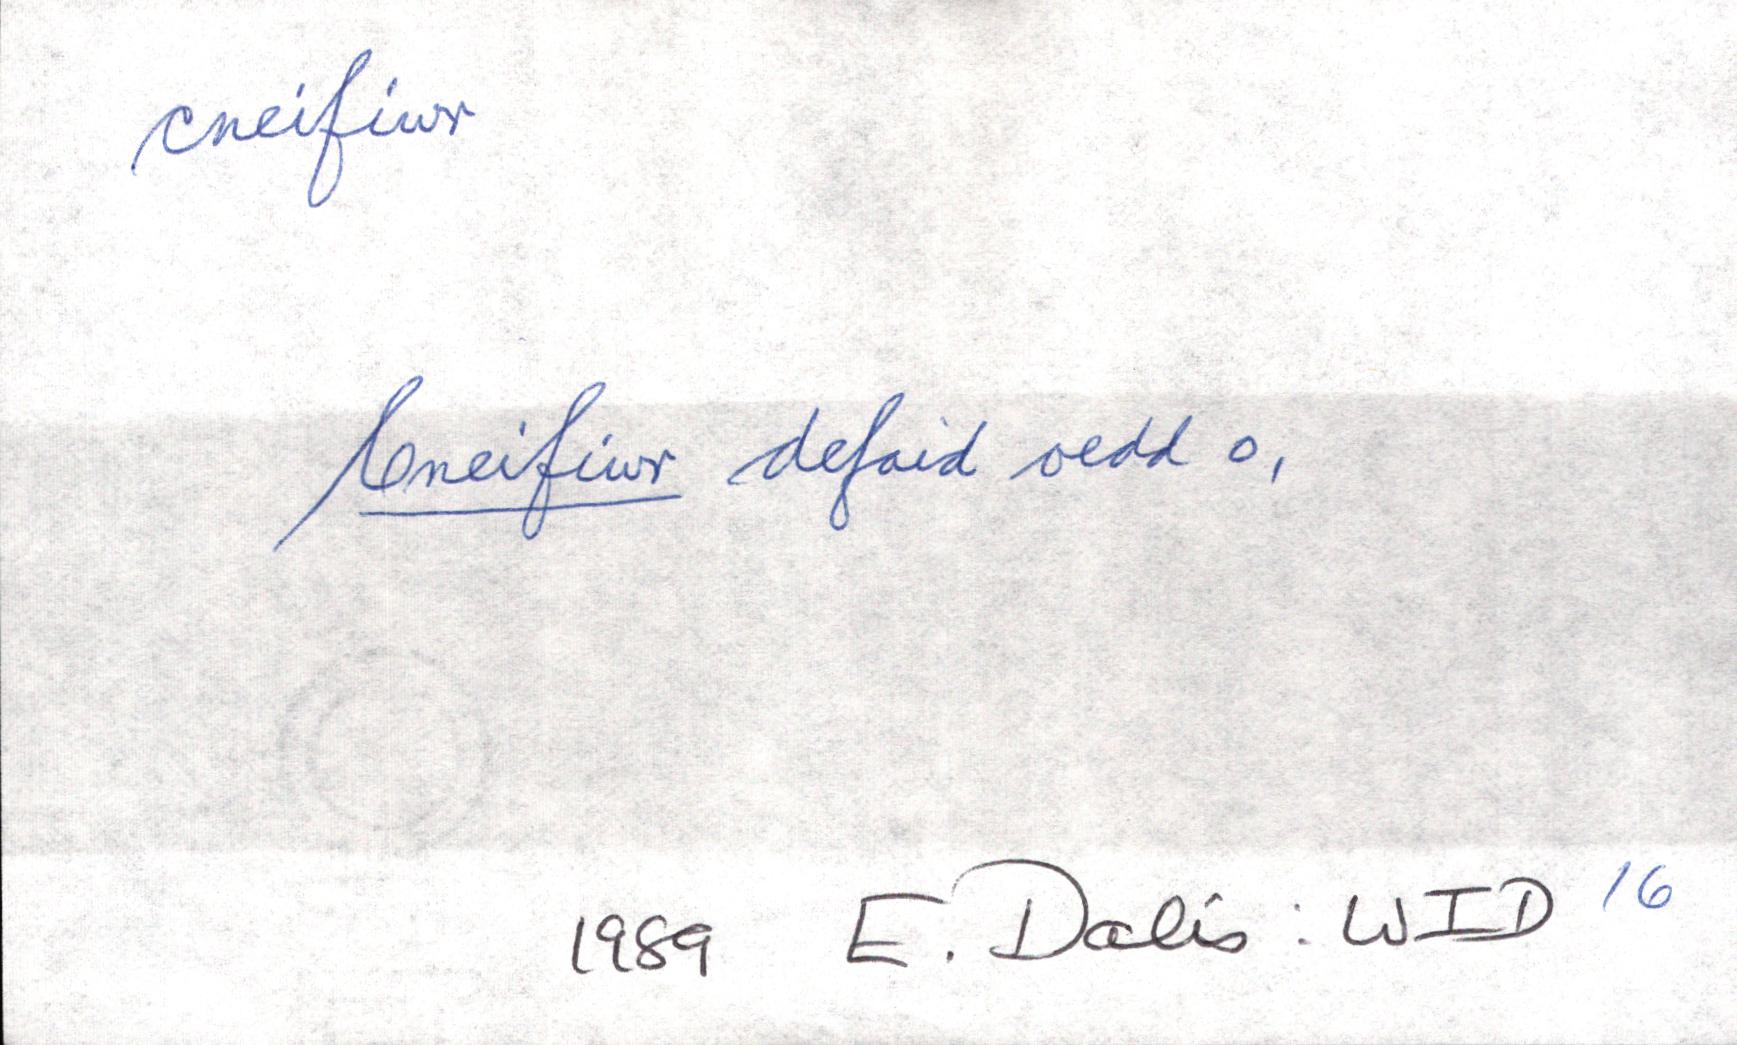 cneifiwr
Cneifiwr defaid oedd o,
1989 E. Dalis : WID 16